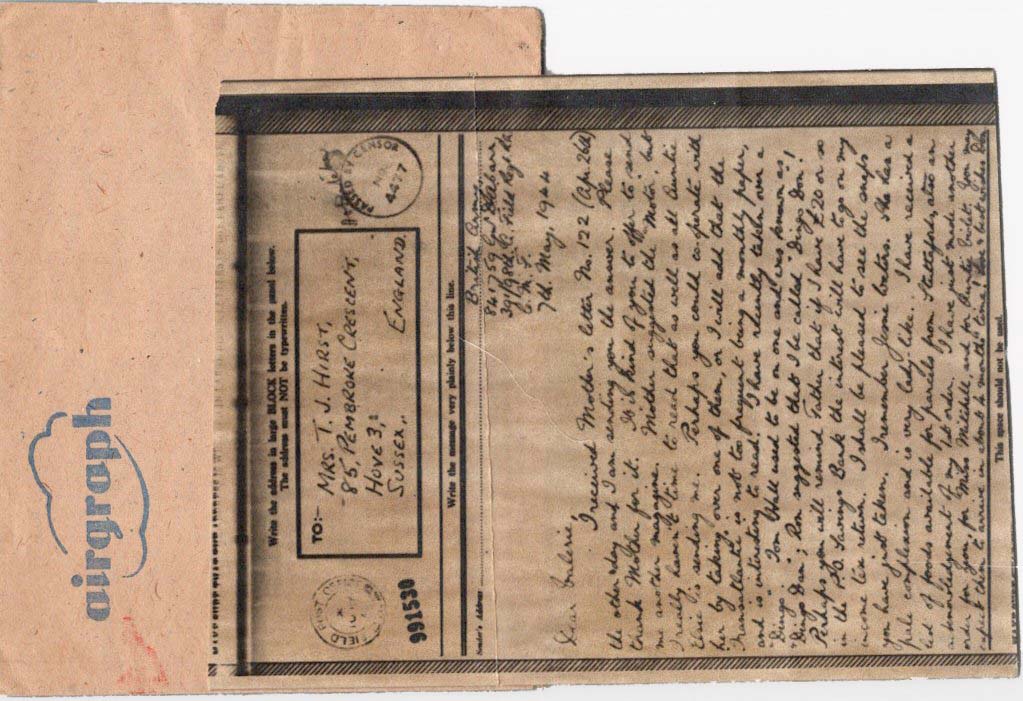 airgraph
Write the address in large BLOCK letters in the panel below.
The address must NOT be typewritten.
TO:-
MRS. T. J. HIRST,
85, PEMBROKE CRESCENT,
HOVE 3,
SUSSEX,
ENGLAND.
FIELD POST OFFICE
PASSED BY CENSOR
No.
4477
991530
Write the message very plainly below this line.
Sender's Address
British Army
7th May, 1944
Dear
I received Mother's letter No. 122 (Ap. 26th)
the other day and I am sending you the answer. Please
thank Mother for it. It is kind of you to offer to send
me another magazine. Mother suggested the 'Motor', but
I really haven't time to read that as well as all Auntie
Elsie is sending me. Perhaps you could co-operate with
her by taking over one of them, or I will add that the
Transatlantic is not too frequent being a monthly paper,
and is interesting to read. I have recently taken over a
"Dingo". Tom Wall used to be on one and was known as
"Dingo Dan"; Ron suggested that I be called "Dingo Don"!
Perhaps you will remind Father that if I have £20 or so
in the P.O. Savings Bank the interest will have to go on my
income tax return. I shall be pleased to see the snaps
you have just taken. I remember Jessie Coates. She has a
pale complexion and is very lady like. I have received a
list of foods available for parcels from Stuttafords, also an
acknowledgement of my last order. I have just made another
order for you, for Miss Mitchell and for Auntie Violet. You may
expect them to arrive in about 4 months time! Love & best wishes Don
This space should not be used.